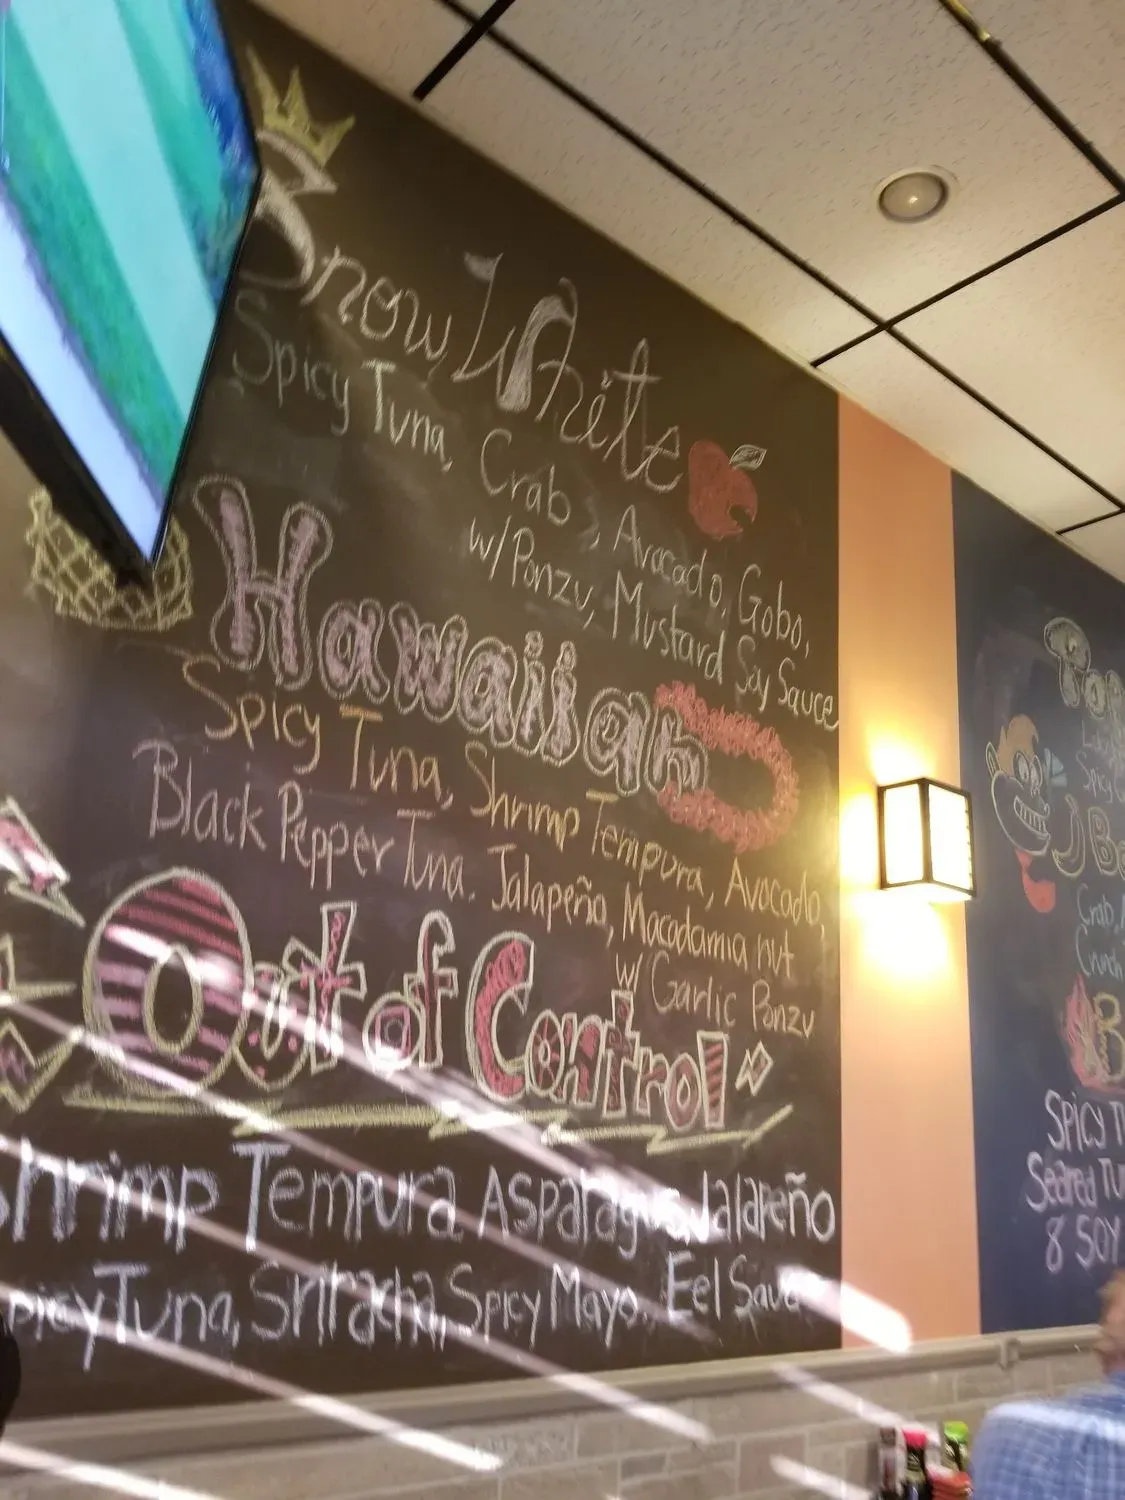 Snow White
Spicy Tuna, Crab, Avocado, Gobo,
w/ Ponzu, Mustard Soy Sauce
Hawaiian
Spicy Tuna, Shrimp Tempura, Avocado,
Black Pepper Tuna. Jalapeño, Macadamia nut
w/ Garlic Ponzu
Out of Control
Shrimp Tempura Asparagus, Jalapeño
Spicy Tuna, Sriracha, Spicy Mayo, Eel Sauce
Spicy
Crab,
Crunch
SPICY T
Seared Tu
& SOY